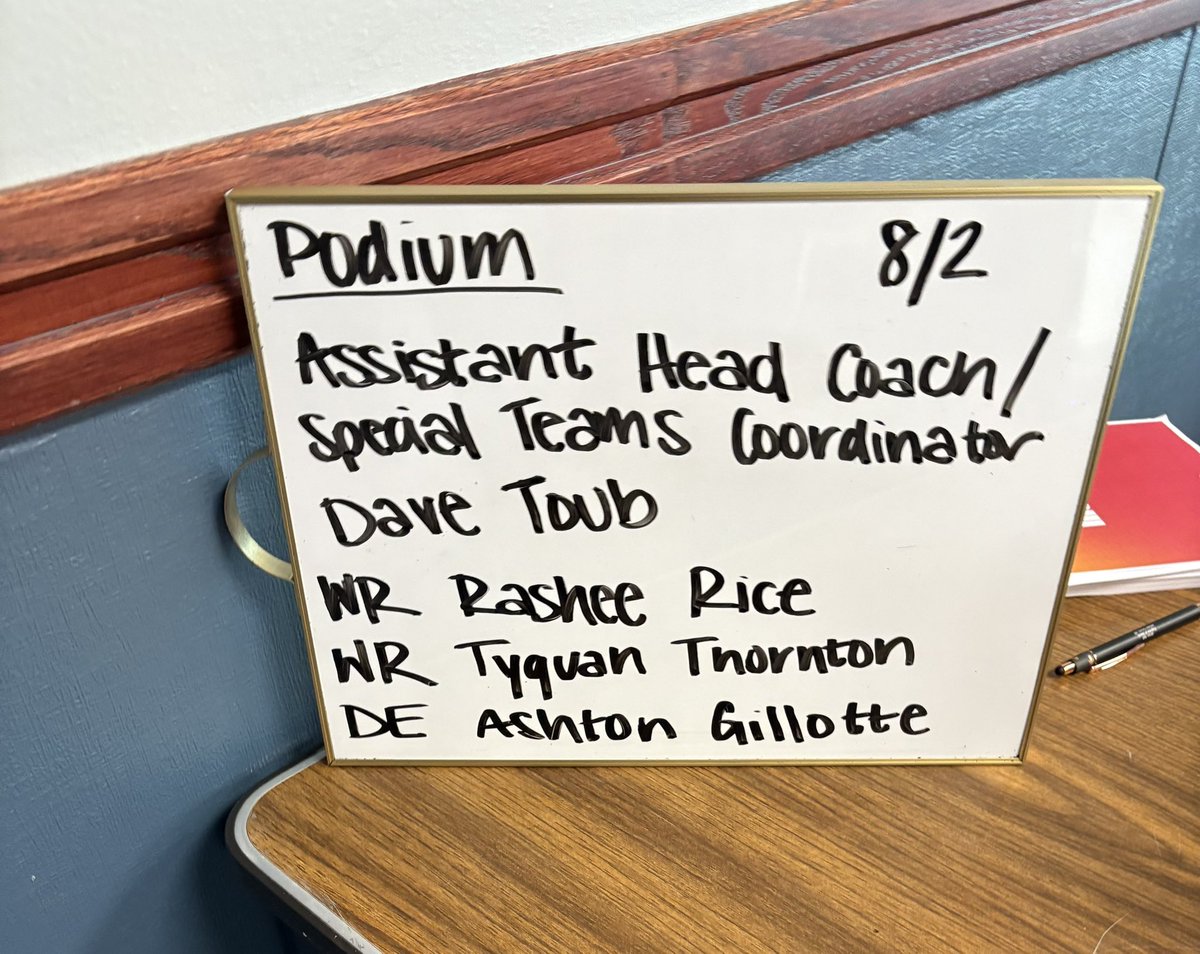 Podium 8/2
Assistant Head Coach/
Special Teams Coordinator
Dave Toub
WR Rashee Rice
WR Tyquan Thornton
DE Ashton Gillotte